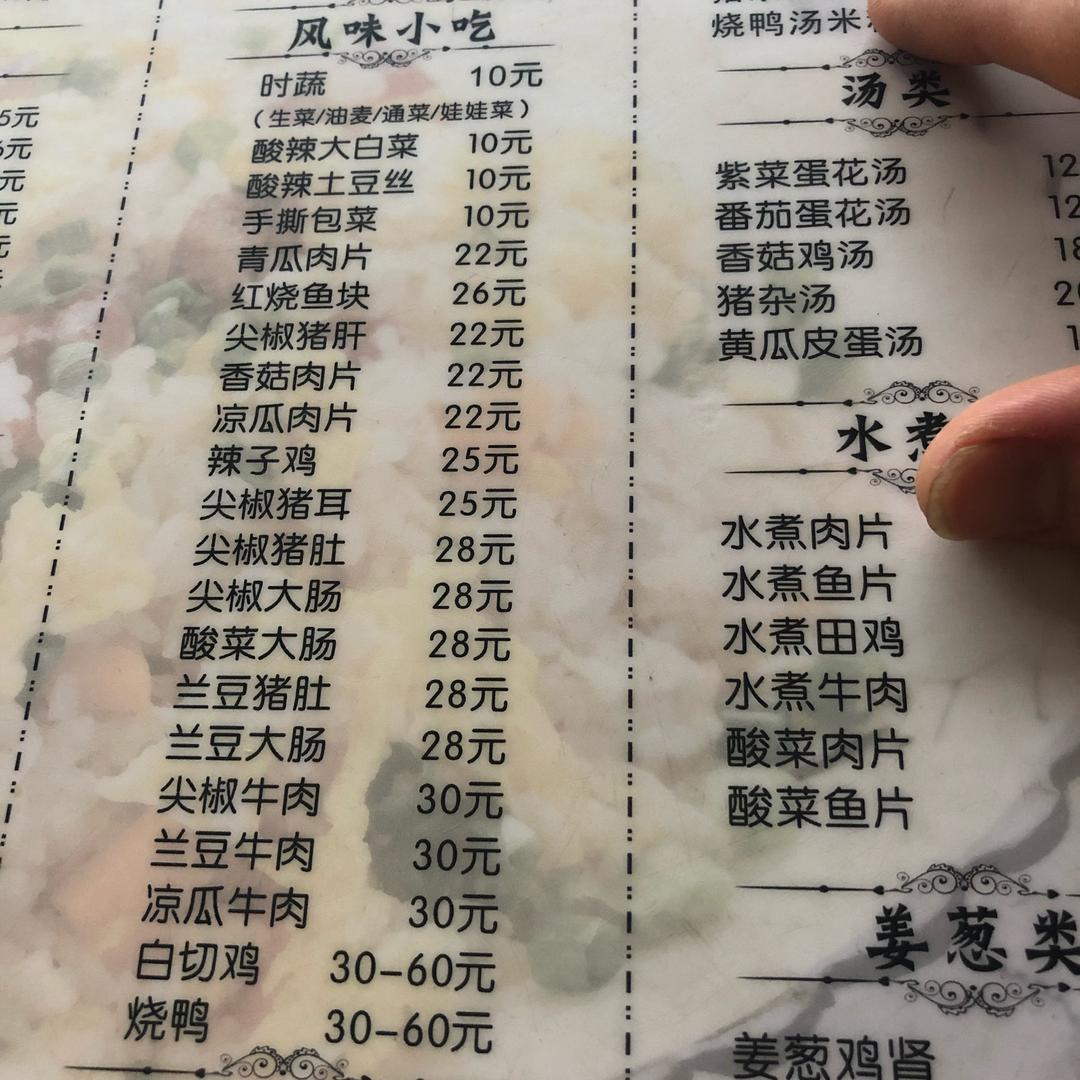 5元
6元
元
元
元
风味小吃
时蔬 10元
（生菜/油麦/通菜/娃娃菜）
酸辣大白菜 10元
酸辣土豆丝 10元
手撕包菜 10元
青瓜肉片 22元
红烧鱼块 26元
尖椒猪肝 22元
香菇肉片 22元
凉瓜肉片 22元
辣子鸡 25元
尖椒猪耳 25元
尖椒猪肚 28元
尖椒大肠 28元
酸菜大肠 28元
兰豆猪肚 28元
兰豆大肠 28元
尖椒牛肉 30元
兰豆牛肉 30元
凉瓜牛肉 30元
白切鸡 30-60元
烧鸭 30-60元
烧鸭汤米
汤类
紫菜蛋花汤 12
番茄蛋花汤 12
香菇鸡汤 18
猪杂汤 20
黄瓜皮蛋汤 1
水煮
水煮肉片
水煮鱼片
水煮田鸡
水煮牛肉
酸菜肉片
酸菜鱼片
姜葱类
姜葱鸡肾